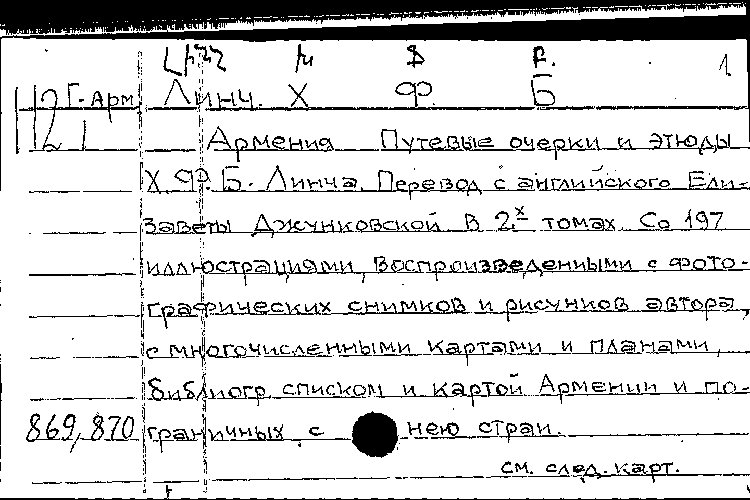 Լինչ Խ Ֆ Բ. 1
Г-Арм Линч. Х Ф. Б
Армения Путевые очерки и этюды
Х. Ф. Б. Линча. Перевод с английского Ели-
заветы Джунковской. В 2х томах. Со 197
иллюстрациями, воспроизведенными с фото-
графических снимков и рисунков автора,
с многочисленными картами и планами,
библиогр. списком и картой Армении и по-
869,870 граничных с нею стран.
см. след. карт.